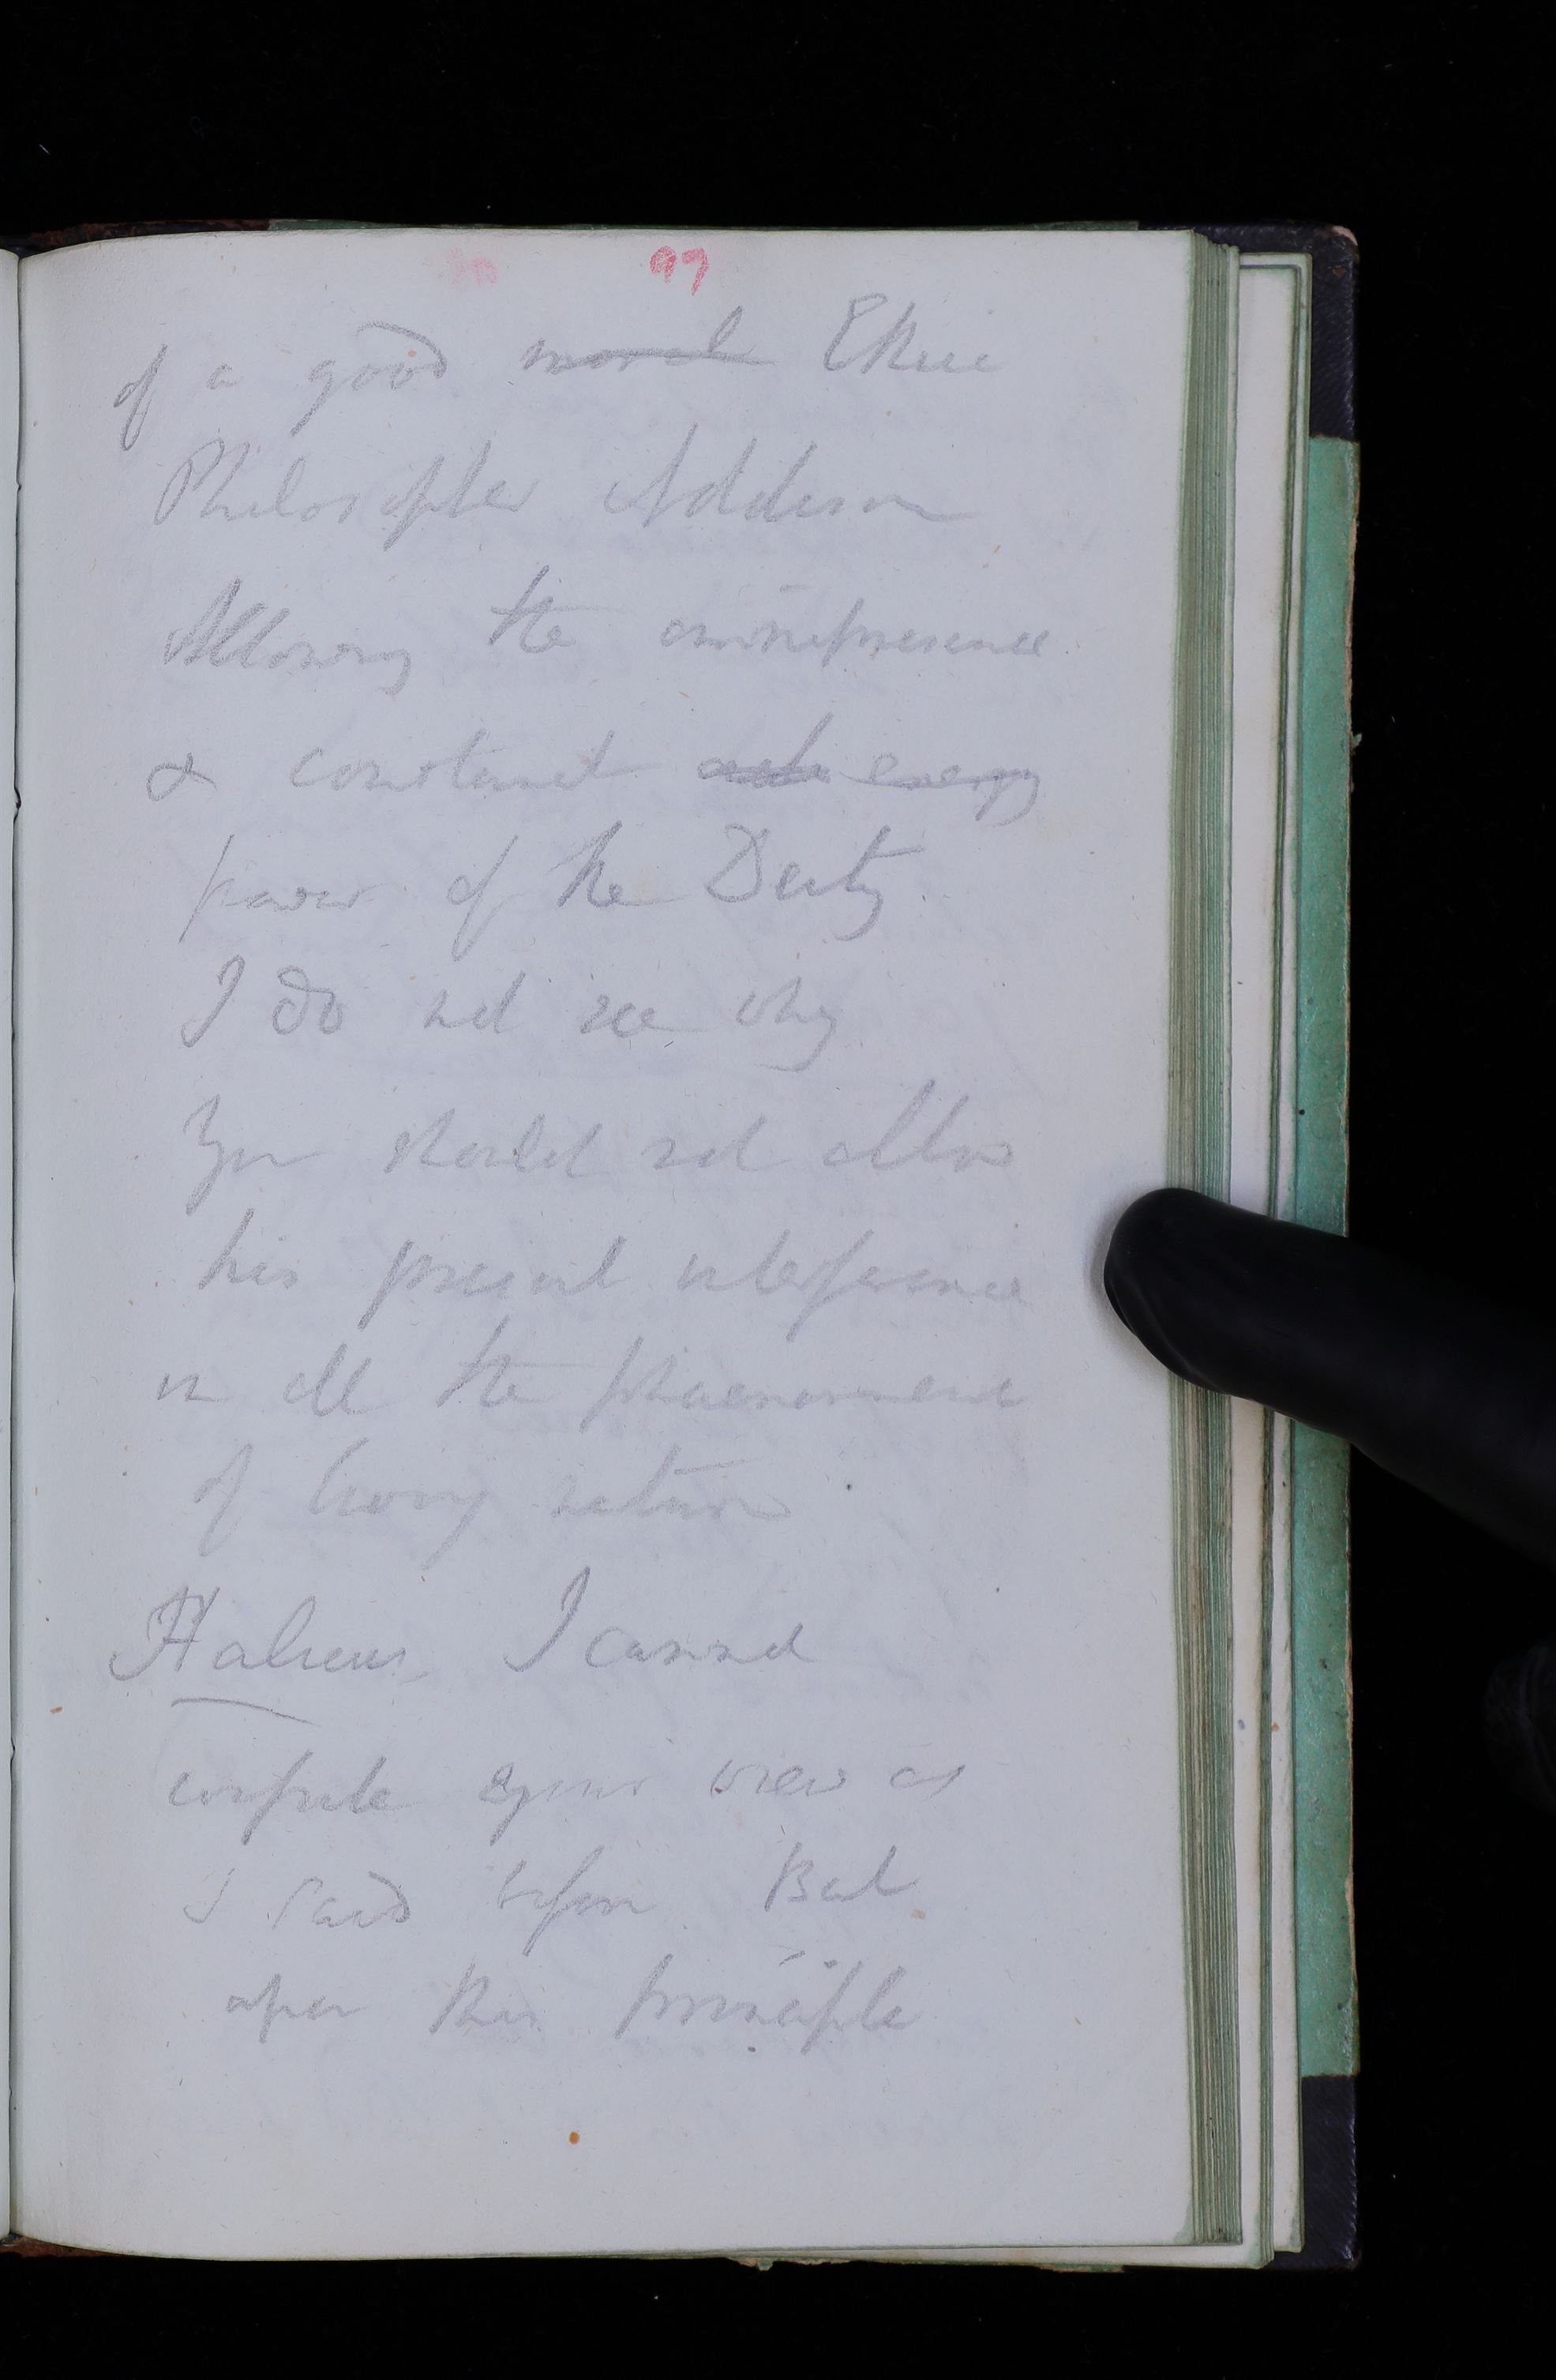 97
of a good moral Ethic
Philosopher Addison
Allowing the omnipresence
& constant energy
power of the Deity
I do not see why
you should not allow
his present interference
in all the phaenomena
of living nature
Halieus. I cannot
confute your view as
I said before But
upon this principle